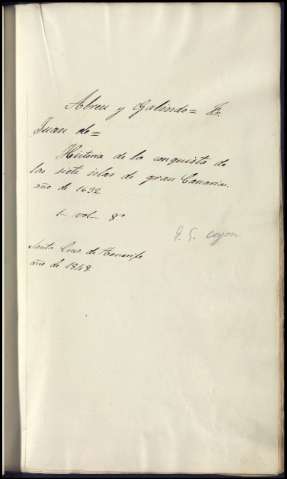 Abreu y Galindo = Fr.
Juan de =
Historia de la conquista de
las siete islas de gran Canaria.
año de 1632
1 vol. 8º
Santa Cruz de Tenerife
año de 1848